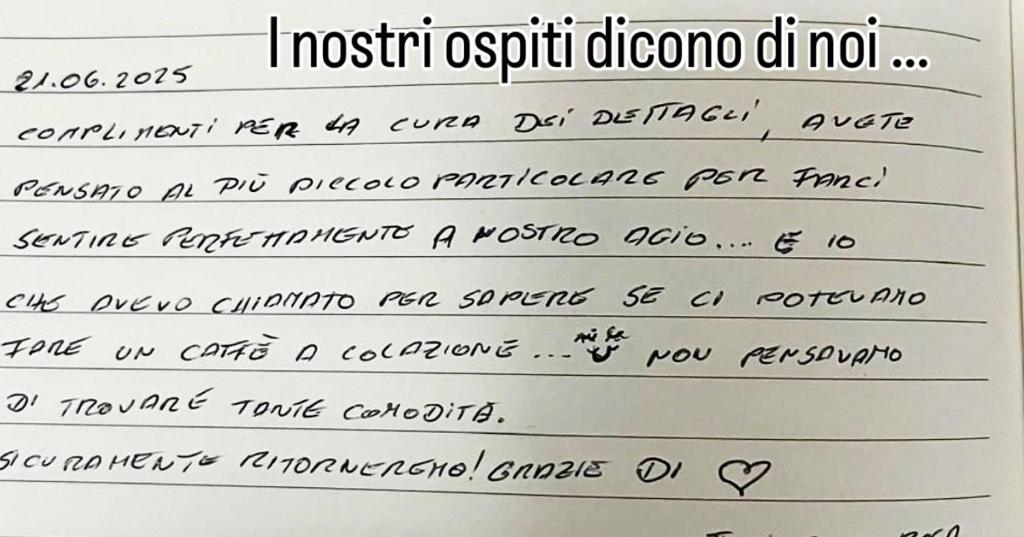 I nostri ospiti dicono di noi ...
21.06.2025
COMPLIMENTI PER LA CURA DEI DETTAGLI, AVETE
PENSATO AL PIÙ PICCOLO PARTICOLARE PER FARCI
SENTIRE PERFETTAMENTE A NOSTRO AGIO.... E IO
CHE AVEVO CHIAMATO PER SAPERE SE CI POTEVAMO
FARE UN CAFFÈ A COLAZIONE... NON PENSAVAMO
DI TROVARE TANTE COMODITÀ.
SICURAMENTE RITORNEREMO! GRAZIE DI ♡